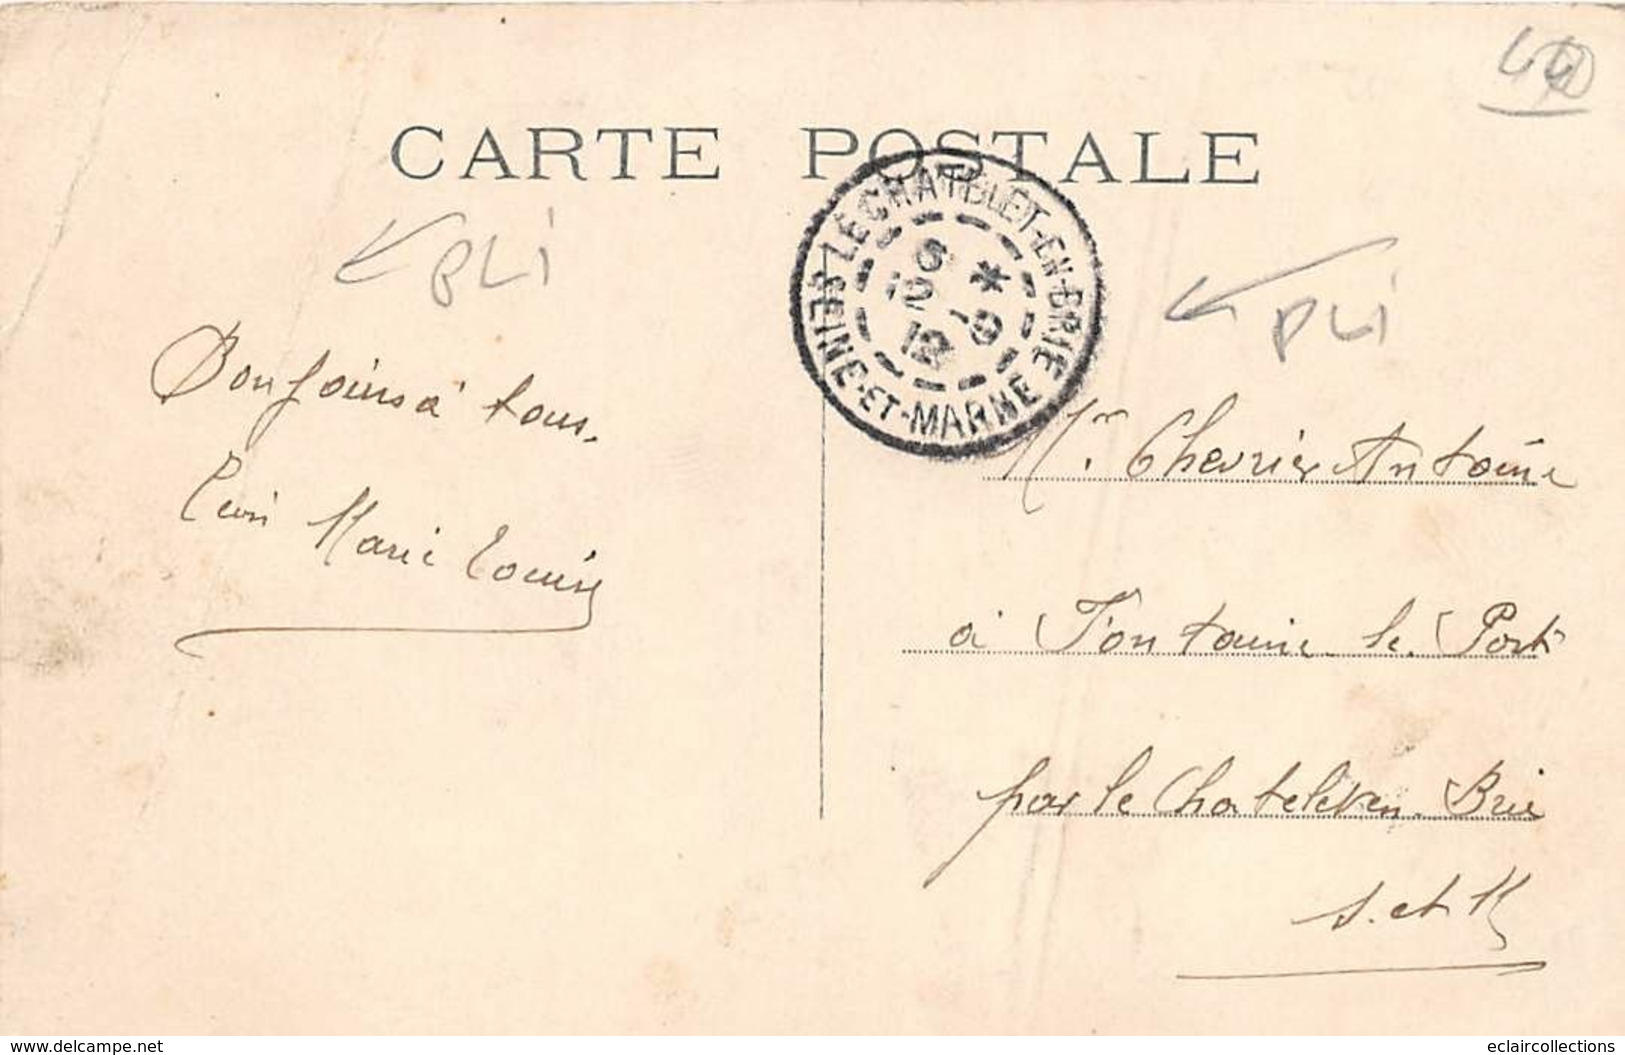 CARTE POSTALE
PLI
PLI
LE CHATELET-EN-BRIE
SEINE-ET-MARNE
6 *
12 - 9
12
Bonjours à tous.
Marie Louise
Mr. Chevrier Antoine
à Fontaine le Port
par le Chatelet en Brie
S. et M
www.delcampe.net
eclaircollections